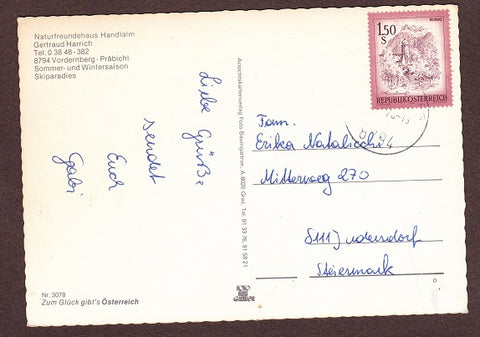 Naturfreundehaus Handlalm
Gertraud Harrich
Tel. 0 38 48 - 382
8794 Vordernberg - Präbichl
Sommer- und Wintersaison
Skiparadies
Liebe Grüße
sendet
Euch
Gabi
Nr. 3078
Zum Glück gibt's Österreich
Ansichtskartenverlag Foto Baumgartner, A-8020 Graz, Tel. 91 33 76, 91 58 21
1.50
S
REPUBLIK ÖSTERREICH
8794
Fam.
Erika
Mitterweg 270
8111 Judendorf
Steiermark